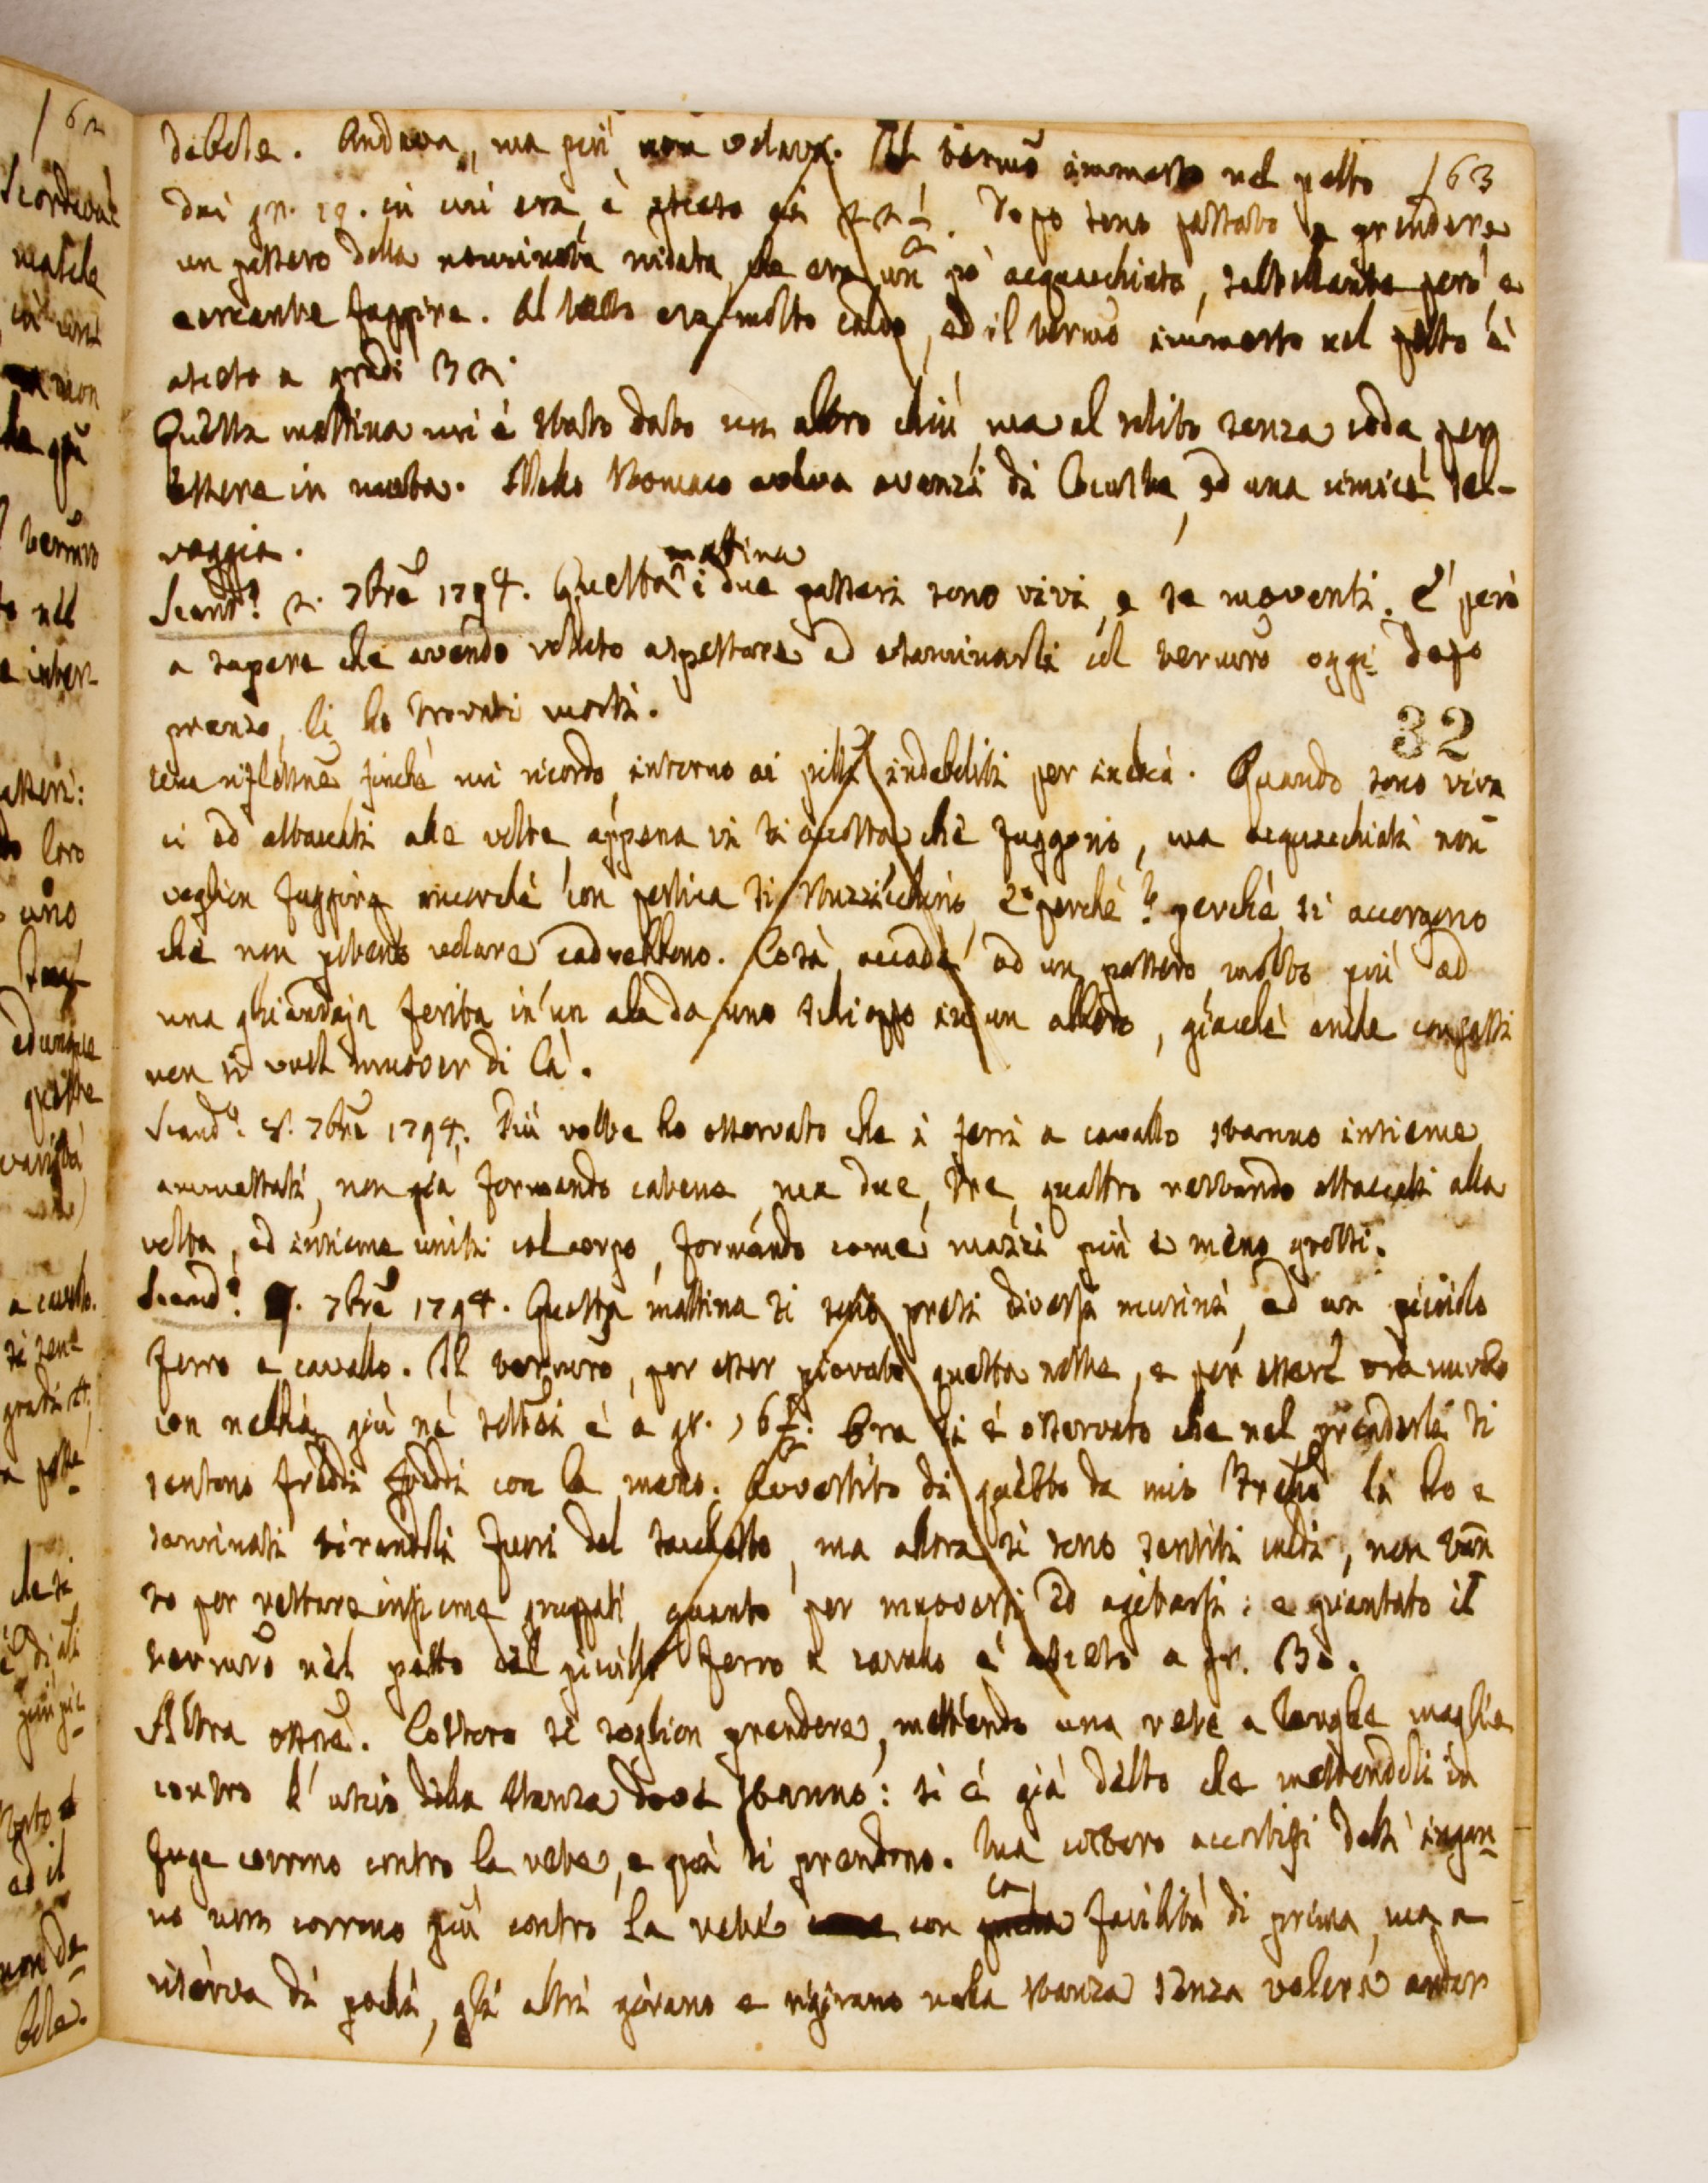 163
debole. Andava, ma più non volava. Il termo immerso nel petto
dai gr. 19. in cui era, è asceso ai 22 1/2. Dopo sono passato a prendere
un passero della nominata nidata, che era un pò acquacchiato, saltellante però, e
cercante fuggire. Al tatto era molto caldo, ed il termo immerso nel petto è
asceso a gradi 32.
Questa mattina mi è stato dato un altro chiù, ma al solito senza coda, per
essere in muta. Nello stomaco aveva avanzi di locuste, ed una cimice sel-
vaggia.
Scand.º 2. 7brẽ 1794. Questa mattina i due passeri sono vivi, e se moventi. È però
a sapere che avendo voluto aspettare ad esaminarli col termrõ oggi dopo
pranzo, li ho trovati morti.
32
riflessne, finchè mi ricordo, intorno ai indeboliti per inedia. Quando sono viva
ci ed attaccati alle volte appena vi si accosta che fuggono, ma acquacchiati non
voglion fuggire ancorchè con pertica si stuzzichino, E perchè? perchè si accorgono
che non potendo volare cadrebbono. Così accade ad un passero, molto più ad
una ghiandaja ferita in un ala da uno schioppo su un albero, giacchè anche con sassi
non si vuol muover di là.
Scand.º 7brẽ 1794. Più volte ho osservato che i ferri a cavallo stanno insieme
ammassati, non già formando catene, ma due, tre, quattro restando attaccati alla
volta, ed insieme uniti col corpo, formando come mazzi più e meno grossi.
Scand.º 7brẽ 1794. Questa mattina si sono presi diversi musini, ed un picciolo
ferro a cavallo. Il termrõ, per esser piovuto questa notte, e per essere ora nuvolo
con nebbia, giù nè è a gr. 16 1/2. Ora si è osservato che nel prenderli si
sentono freddi freddi con la mano. Avvertito di questo da mio Frello li ho e
saminati tirandoli fuori del sacchetto, ma allora si sono sentiti caldi, non tan
to per restare insieme gruppati, quanto per muoversi ed agitarsi: e piantato il
termrõ nel petto del picciolo ferro a cavallo è asceso a gr. 30.
Altra ossnẽ. Costoro si soglion prendere, mettendo una rete a larghe maglie
contro l' uscio della stanza dove stanno: si è già detto che mettendoli in
fuga corrono contro la rete, e già si prendono. Ma costoro accortisi dell' ingan-
no non corrono più contro la rete con la facilità di prima, ma a
riserva di pochi, gli altri girano e rigirano nella stanza senza volere andar